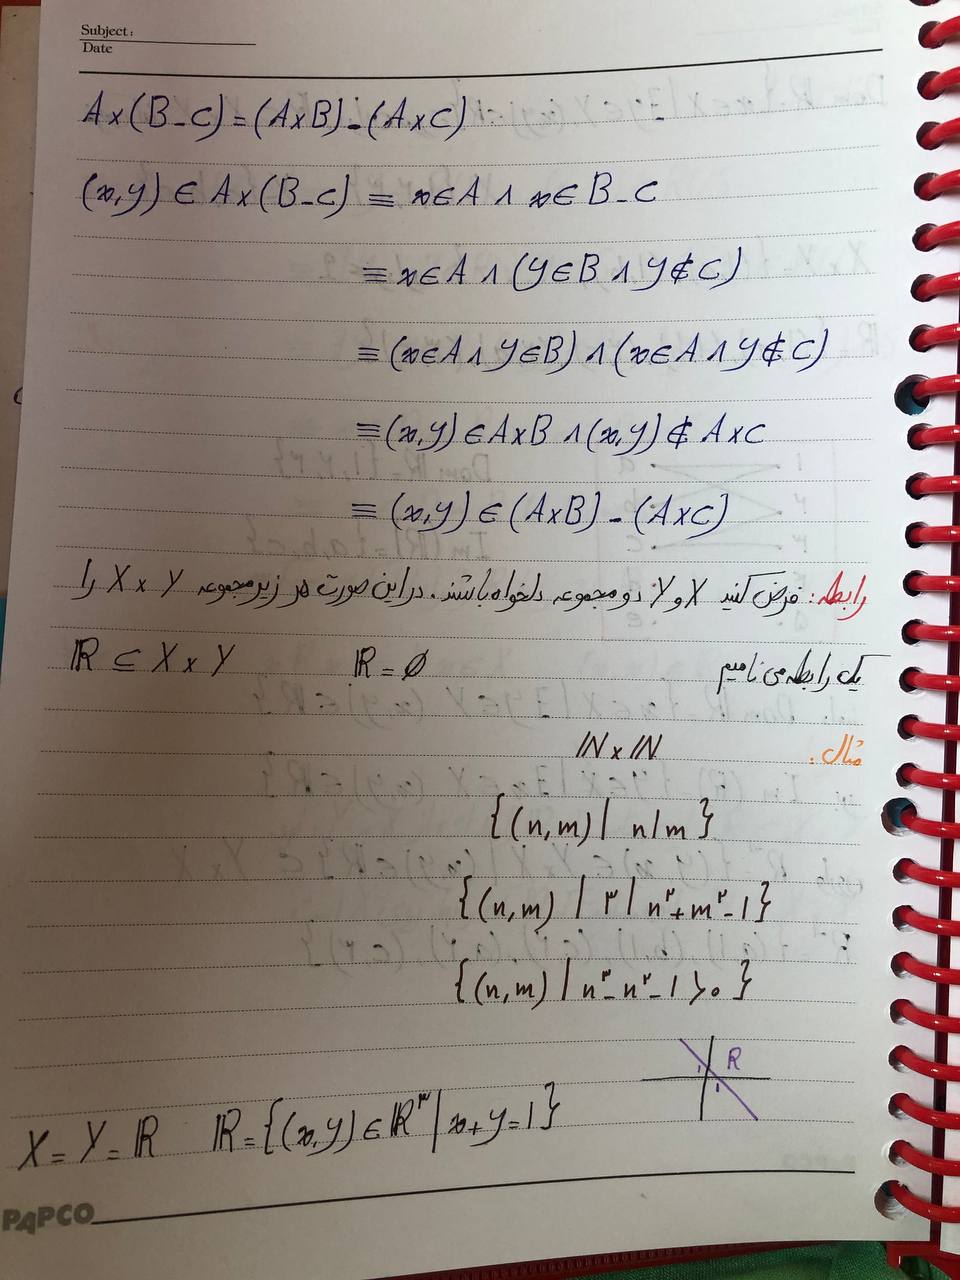 Subject:
Date
A×(B-C)=(A×B)-(A×C)
(x,y)∈A×(B-C) ≡ x∈A ∧ x∈B-C
≡ x∈A ∧ (y∈B ∧ y∉C)
≡ (x∈A ∧ y∈B) ∧ (x∈A ∧ y∉C)
≡ (x,y)∈A×B ∧ (x,y)∉A×C
≡ (x,y)∈(A×B)-(A×C)
رابطه: فرض کنید X و Y دو مجموعه دلخواه باشند. در این صورت هر زیرمجموعه X×Y را
یک رابطه می نامیم ℝ=∅ ℝ⊆X×Y
مثال: ℕ×ℕ
{(n,m) | n|m}
{(n,m) | ۳ | n²+m²-1}
{(n,m) | n³-n²-1>۰}
R
1
1
X=Y=ℝ ℝ={(x,y)∈ℝ³ | x+y=1}
PAPCO